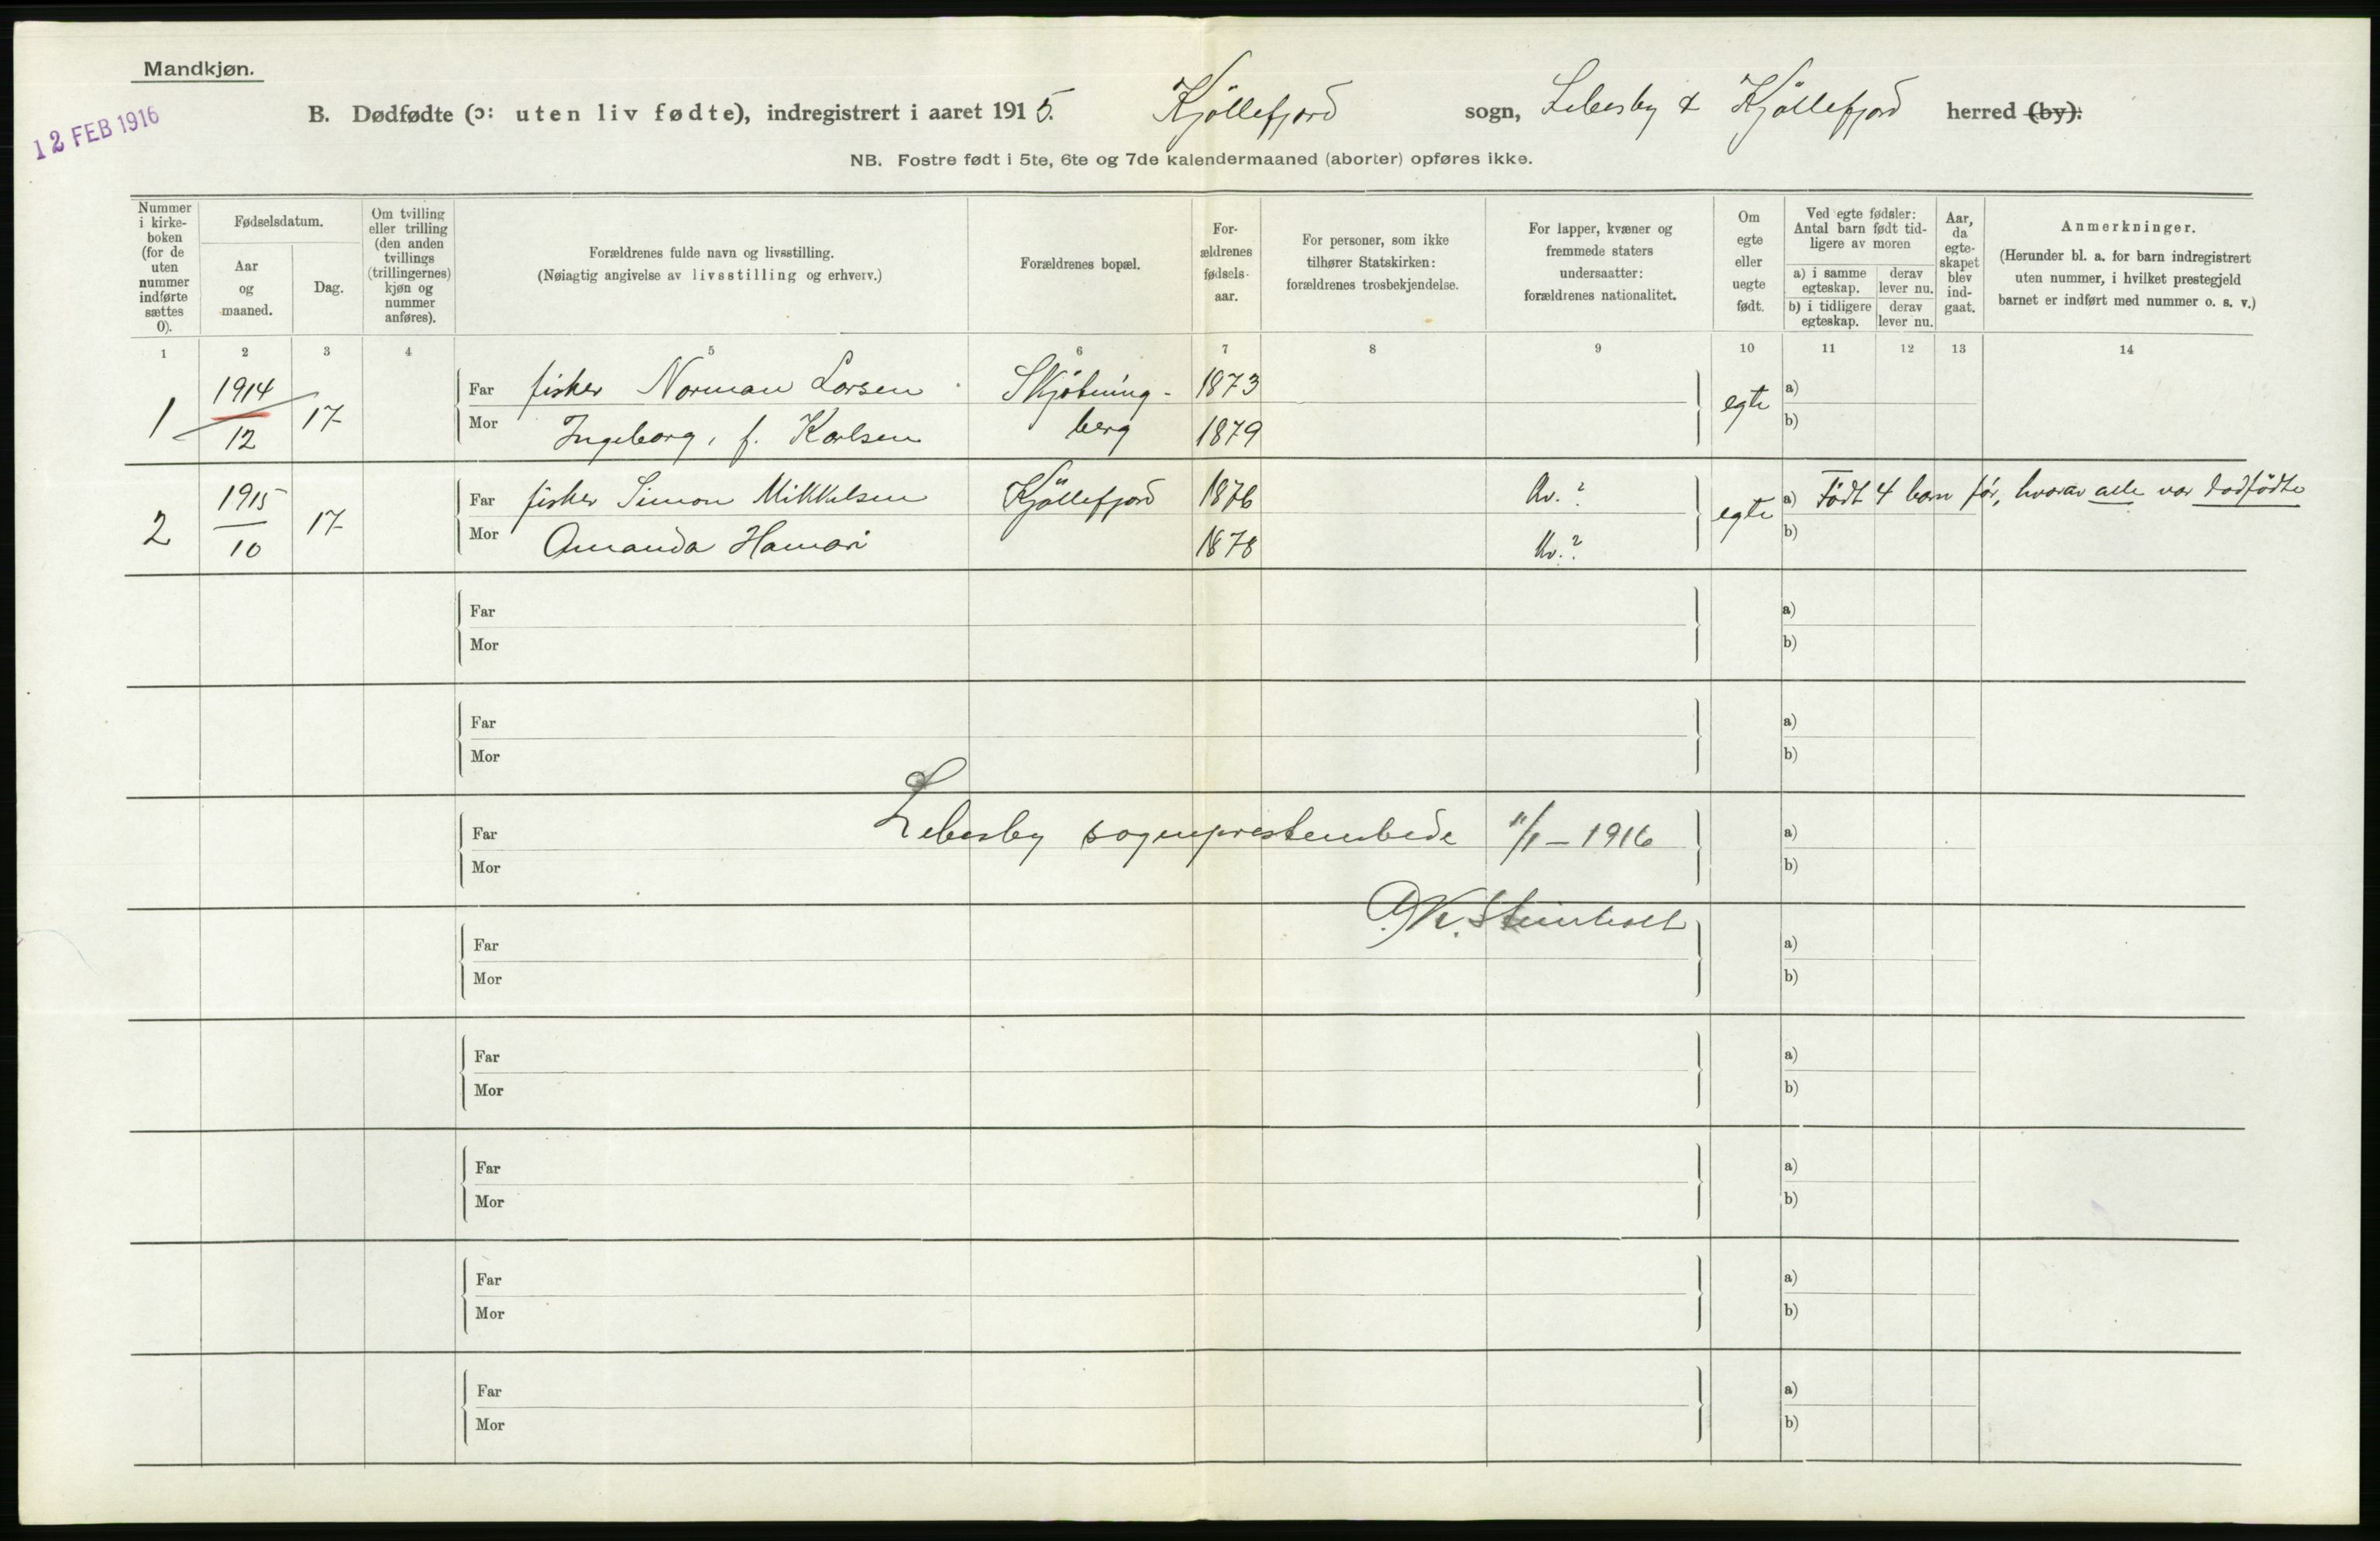 Mandkjøn.
12 FEB 1916
B. Dødfødte (ɔ: uten liv fødte), indregistrert i aaret 1915. Kjöllefjord sogn, Lebesby & Kjöllefjord herred (by):
NB. Fostre født i 5te, 6te og 7de kalendermaaned (aborter) opføres ikke.
Nummer i kirke-boken (for de uten nummer indførte sættes 0).
Fødselsdatum.
Aar og maaned.
Dag.
Om tvilling eller trilling (den anden tvillings (trillingernes) kjøn og nummer anføres).
Forældrenes fulde navn og livsstilling.
(Nøiagtig angivelse av livsstilling og erhverv.)
Forældrenes bopæl.
For-ældrenes fødsels-aar.
For personer, som ikke tilhører Statskirken: forældrenes trosbekjendelse.
For lapper, kvæner og fremmede staters undersaatter: forældrenes nationalitet.
Om egte eller uegte født.
Ved egte fødsler: Antal barn født tid-ligere av moren
a) i samme egteskap.
derav lever nu.
b) i tidligere egteskap.
derav lever nu.
Aar, da egte-skapet blev ind-gaat.
Anmerkninger.
(Herunder bl. a. for barn indregistrert uten nummer, i hvilket prestegjeld barnet er indført med nummer o. s. v.)
1 2 3 4 5 6 7 8 9 10 11 12 13 14
1 1914 12 17 Far fisker Norman Larsen Skjötning- 1873 egte a)
Mor Ingeborg, f. Karlsen berg 1879 b)
2 1915 10 17 Far fisker Simon Mikkelsen Kjöllefjord 1876 Kv.? egte a) Födt 4 barn før, hvorav alle var dødfödte
Mor Amanda Hamari 1878 Kv.? b)
Far a)
Mor b)
Far a)
Mor b)
Far Lebesby sogneprestembede 11/1 - 1916 a)
Mor b)
A. K. Steinholt
Far a)
Mor b)
Far a)
Mor b)
Far a)
Mor b)
Far a)
Mor b)
Far a)
Mor b)